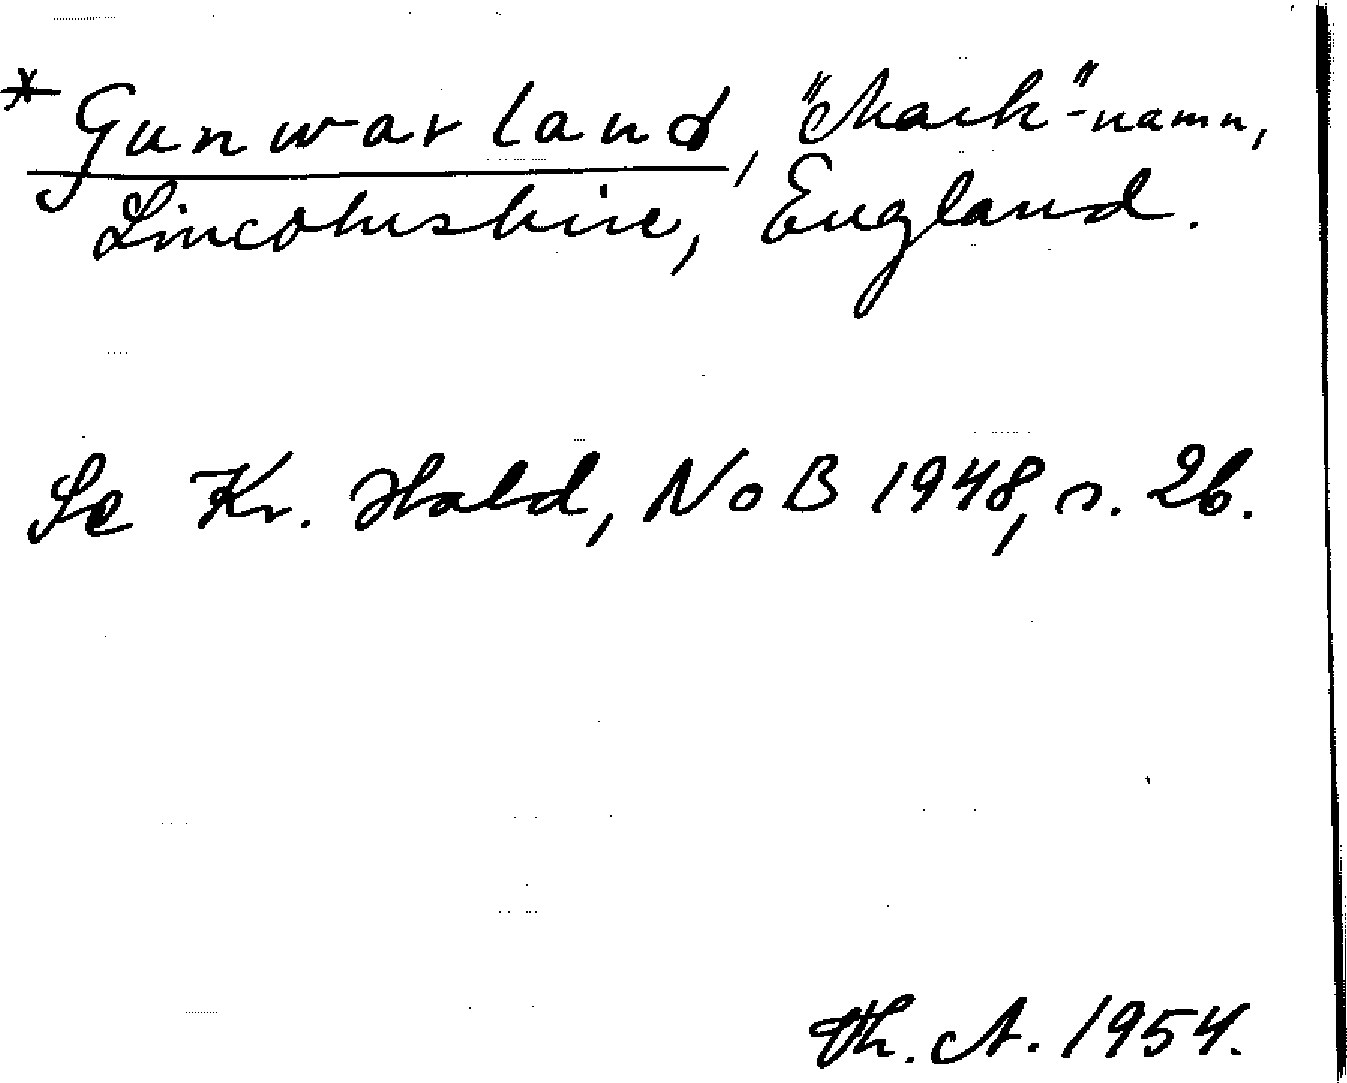 * Gunwarland, "Mark"-namn,
Lincolnshire, England.
Se Kr. Hald, NoB 1948, s. 26.
Th. A. 1954.